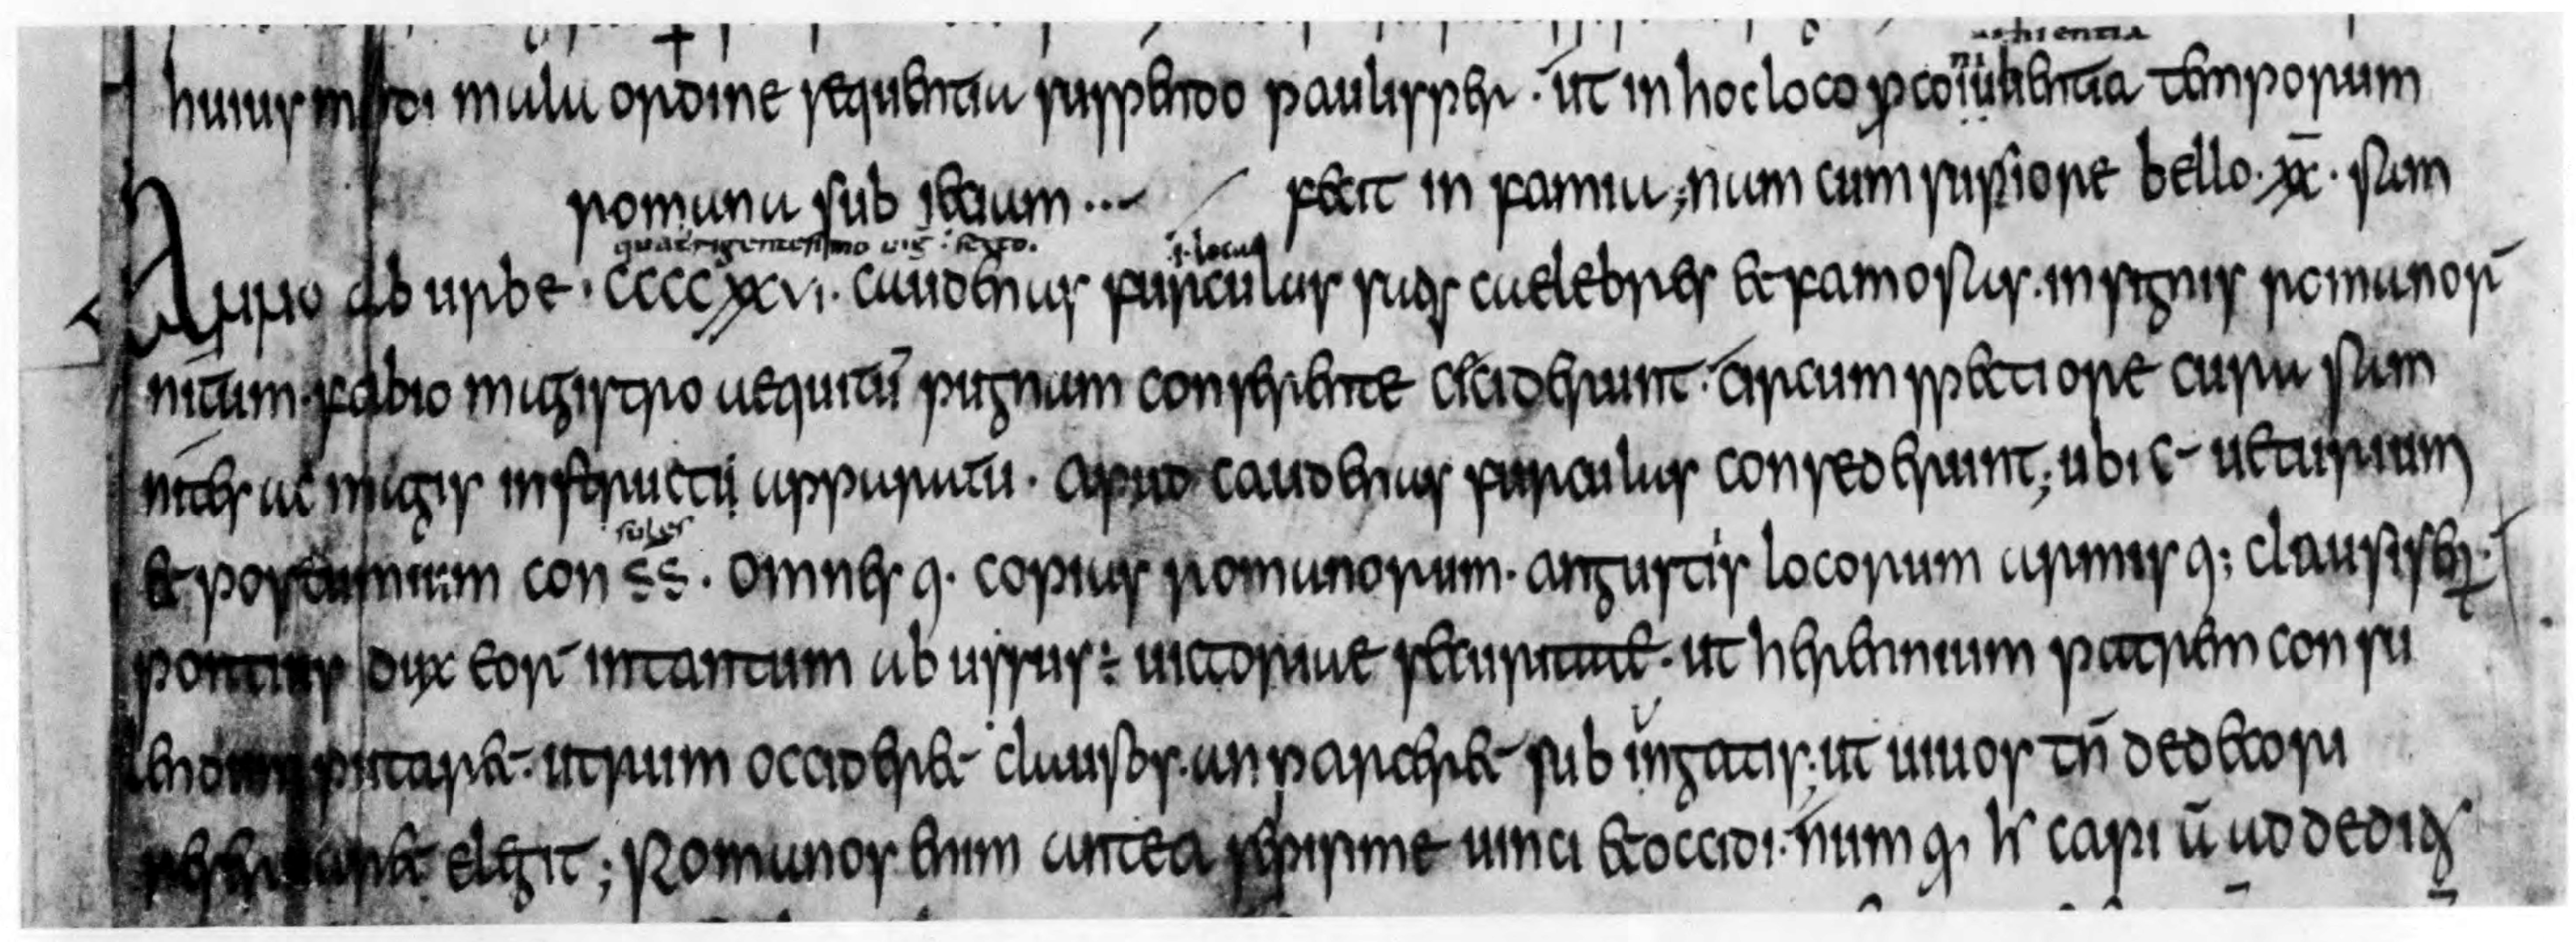 uenientia
huius modi mali ordine sequentia suspendo paulisper · ut in hoc loco p coniuuentia temporum
romanu sub iecium ... fecit in famia ; nam cum suriore bello · xx · sam
quadrigentesimo uig : sexto . .i. locus
Anno ab urbe · ccccxxvi · caudenas furculas satis caelebres & famosas · insignis romanor̄
nitum · fabio magistro aequitū pugnam conserente ceciderunt · circumspectiore cura sam
nites ac magis instructu apparatu · apud caudenas furculas consederunt ; ubi c- ueturium
sules
& postumium con ss . omnes q. copias romanorum · angustis locorum armis q; clausissent ·
pontius dux eor̄ intantum abussus ÷ uictoriae securitate · ut herennium patrem consu
lendum putaret · utrum occideret clausos · an parceret subiugatis · ut uiuos tn̄ dedecori
reseruaret elegit ; Romanos enim antea sepissime uinci & occidi · numq, h- capi ū ad dedi